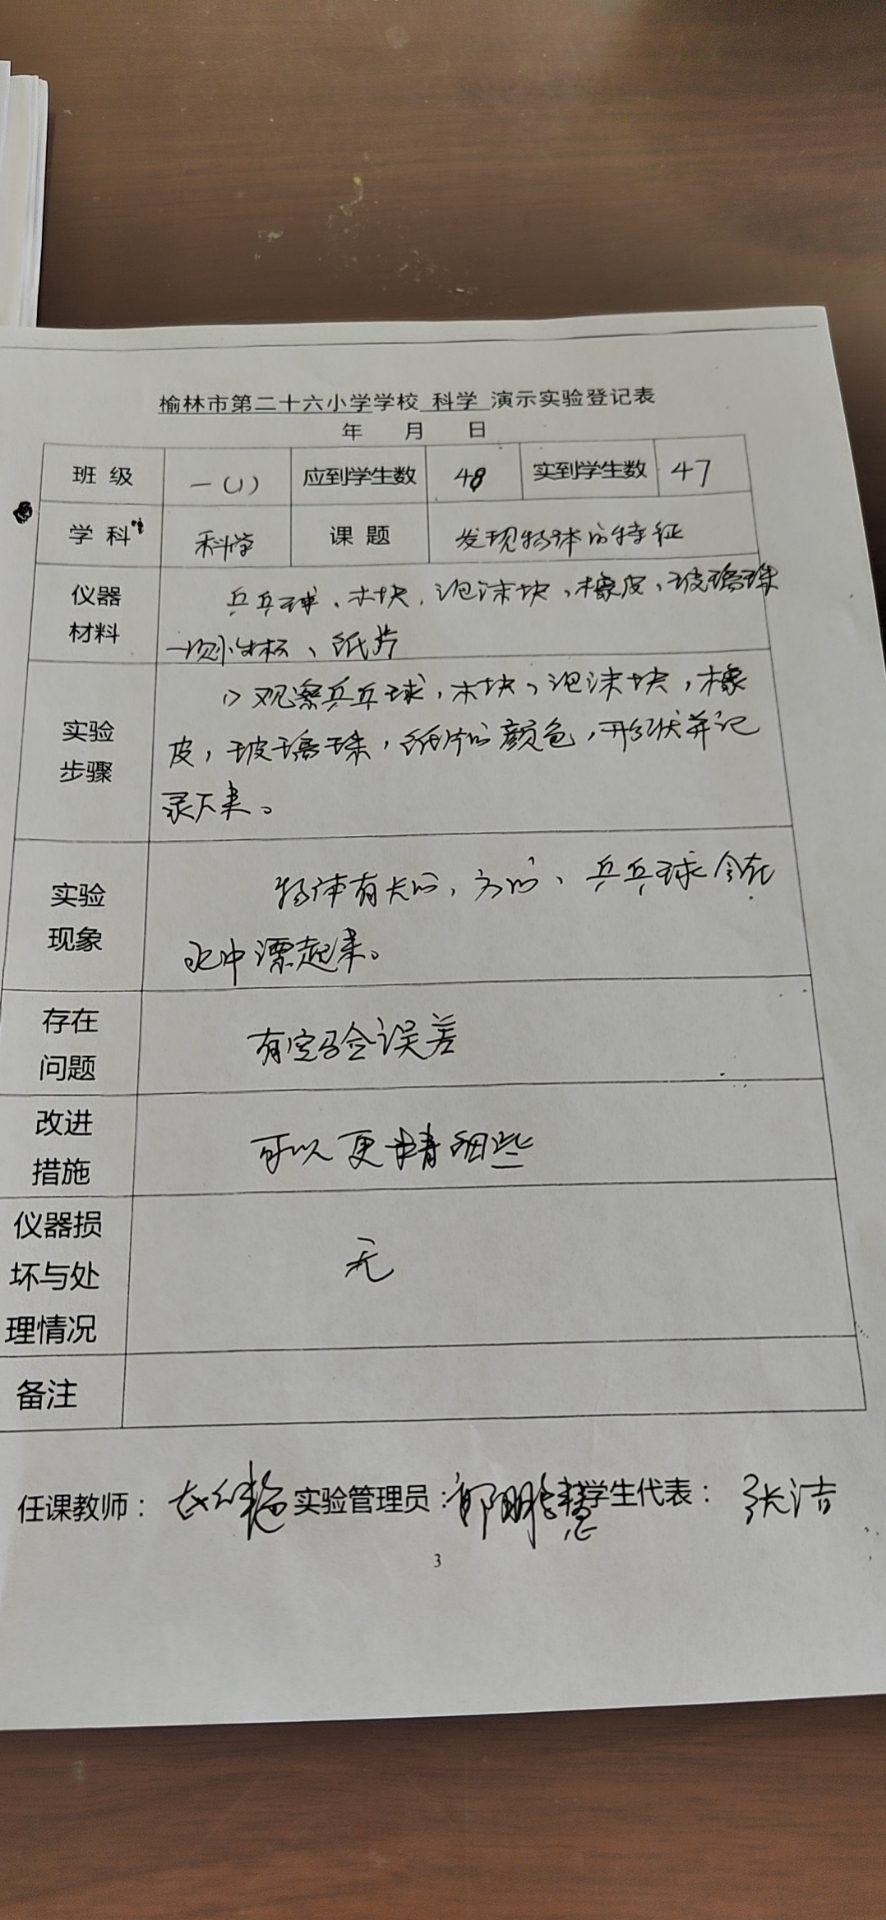 榆林市第二十六小学学校 科学 演示实验登记表
年 月 日
班级 一(1) 应到学生数 48 实到学生数 47
学科 科学 课题 发现物体的特征
仪器材料 乒乓球、木块、泡沫块、橡皮、玻璃珠
、纸片
实验步骤 1) 观察乒乓球,木块、泡沫块,橡
皮,玻璃珠,纸片的颜色,形状并记
录下来。
实验现象 物体有长的,方的、乒乓球会在
水中漂起来。
存在问题 有实验误差
改进措施 可以更精细些
仪器损坏与处理情况 无
备注
任课教师: 实验管理员: 学生代表: 张洁
3